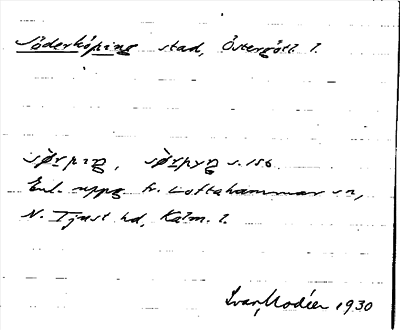 Söderköping stad, Östergötl l.
sørpıŋg, sørpyŋ s. 156
Enl. uppg fr. Loftahammar sn,
N. Tjust hd, Kalm. l.
Ivar Modéer 1930